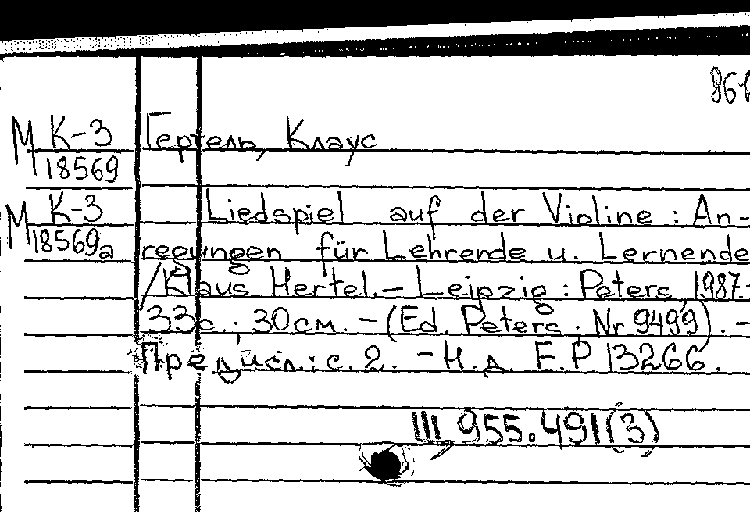 М К-3 Гертель, Клаус
18569
М К-3 Liedspiel auf der Violine : An-
18569а regungen für Lehrende u. Lernende
/Klaus Hertel. – Leipzig : Peters, 1987.-
33с.; 30см. – (Ed. Peters ; Nr 9499). –
Предисл.: с. 2. – Н.д. E.P 13266.
III, 955.491(3)